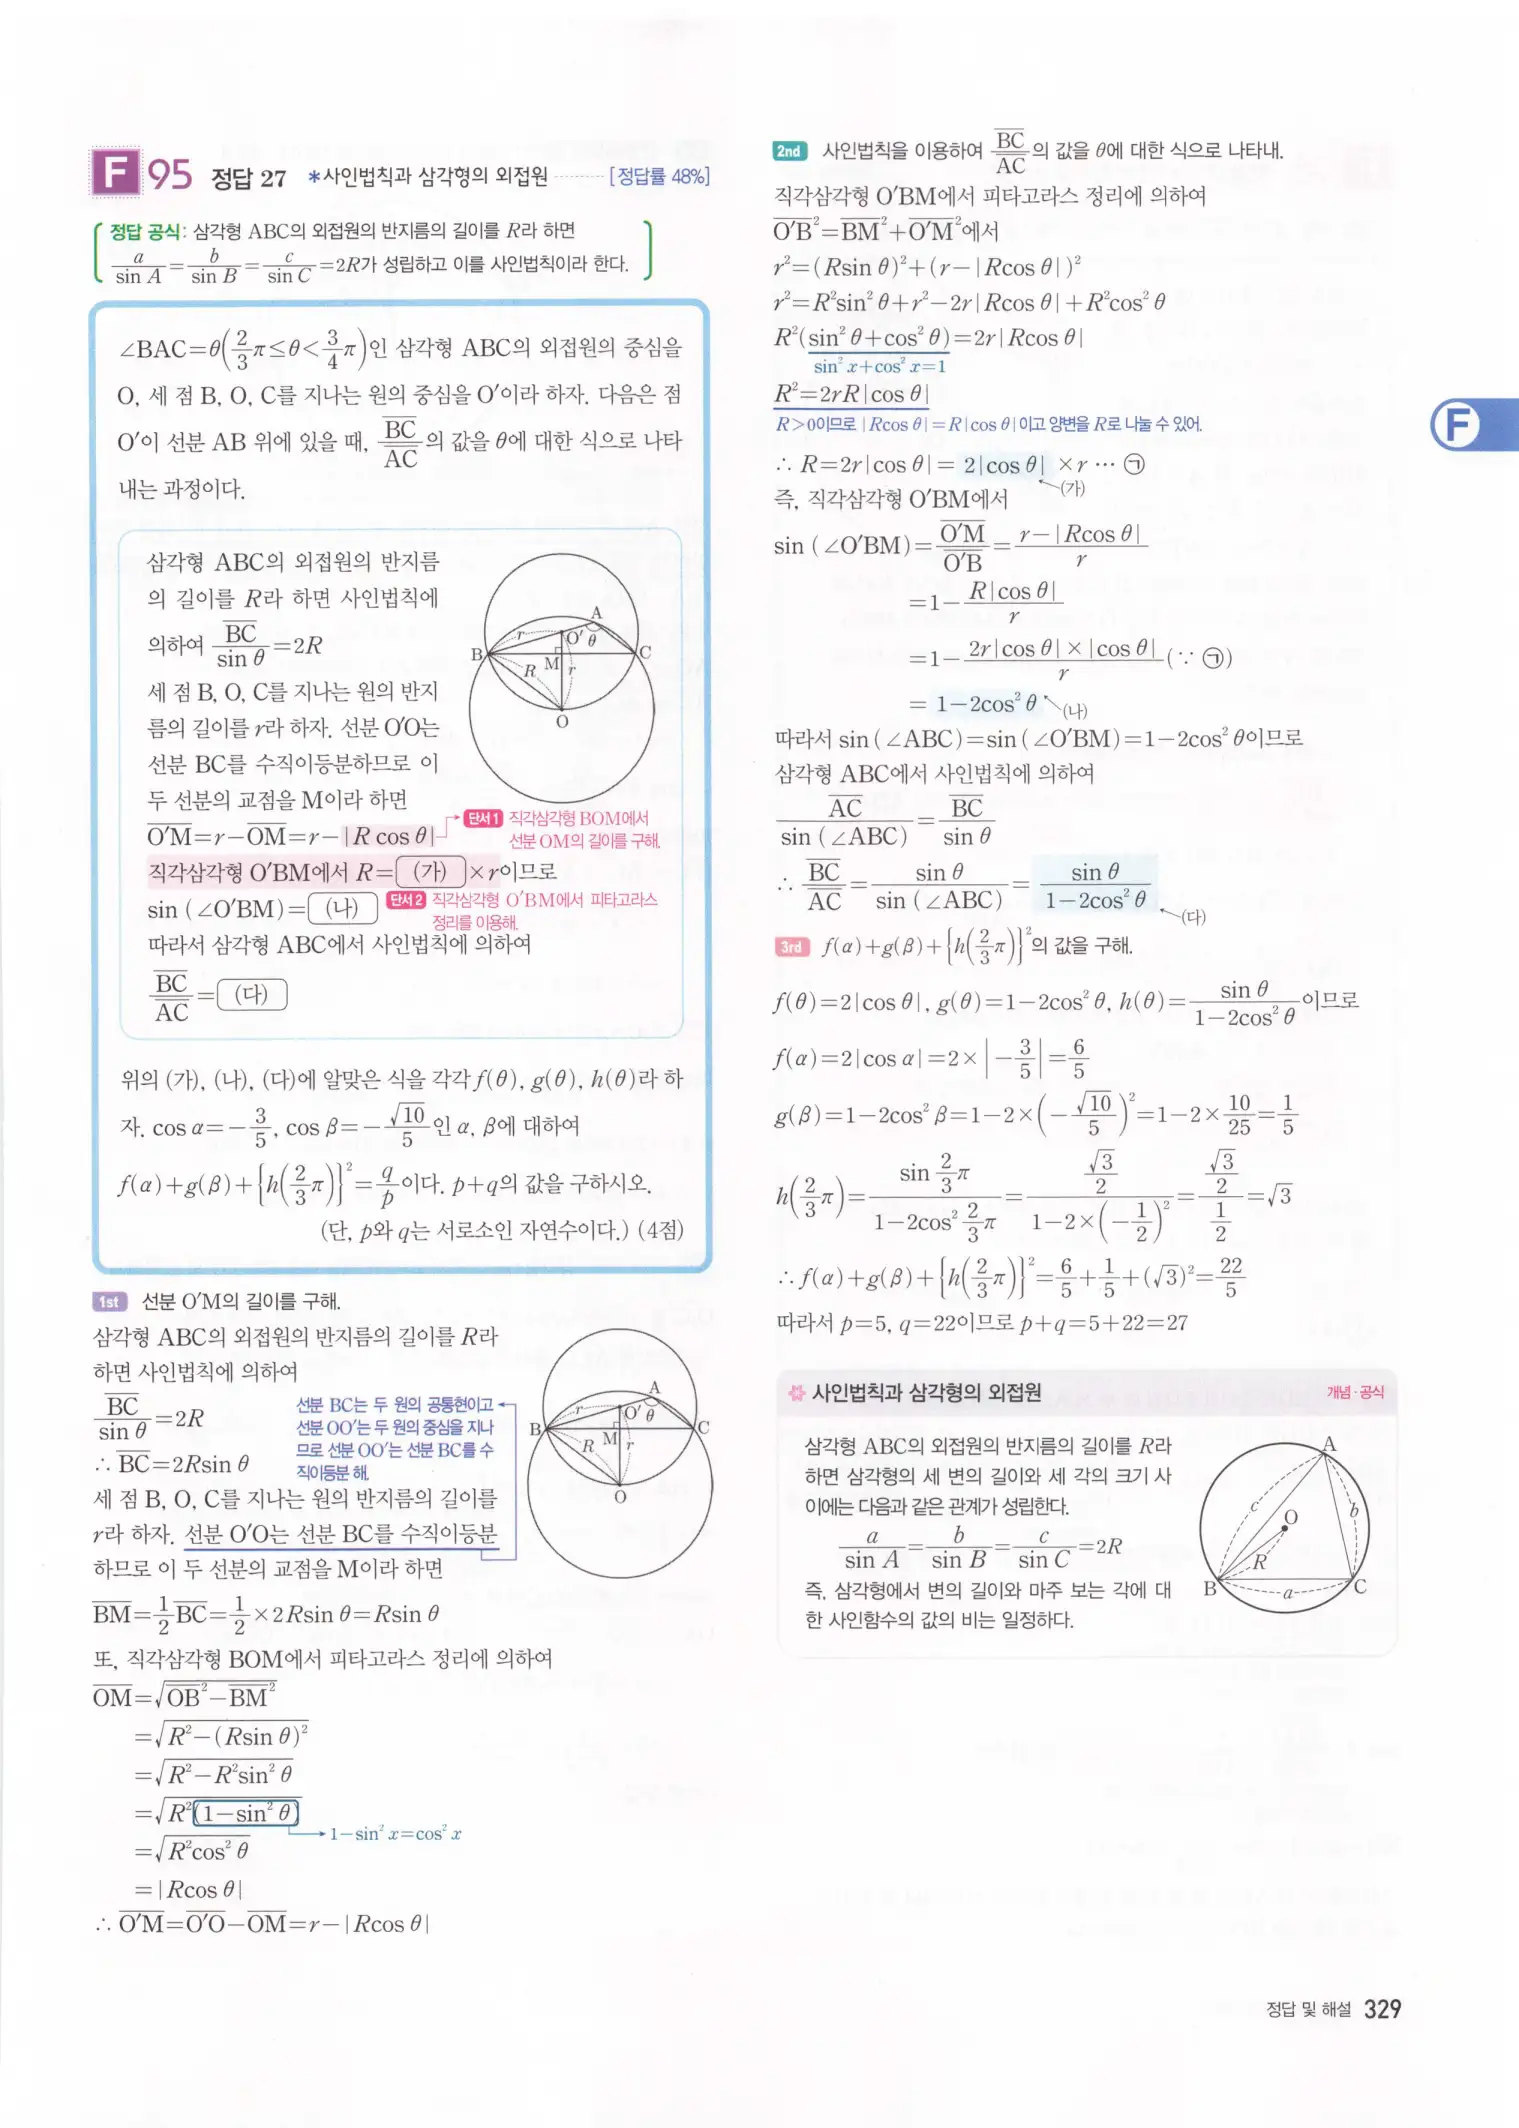 F 95 정답 27 *사인법칙과 삼각형의 외접원 ········ [정답률 48%]
정답 공식: 삼각형 ABC의 외접원의 반지름의 길이를 R라 하면
a/sin A = b/sin B = c/sin C = 2R가 성립하고 이를 사인법칙이라 한다.
∠BAC=θ(2/3π≤θ<3/4π)인 삼각형 ABC의 외접원의 중심을
O, 세 점 B, O, C를 지나는 원의 중심을 O′이라 하자. 다음은 점
O′이 선분 AB 위에 있을 때, B̅C̅/A̅C̅의 값을 θ에 대한 식으로 나타
내는 과정이다.
삼각형 ABC의 외접원의 반지름
의 길이를 R라 하면 사인법칙에
의하여 B̅C̅/sin θ=2R
세 점 B, O, C를 지나는 원의 반지
름의 길이를 r라 하자. 선분 O′O는
선분 BC를 수직이등분하므로 이
두 선분의 교점을 M이라 하면
O̅′M̅=r-O̅M̅=r-|R cos θ|
단서1 직각삼각형 BOM에서
선분 OM의 길이를 구해.
직각삼각형 O′BM에서 R= (가) ×r이므로
sin (∠O′BM)= (나)
단서2 직각삼각형 O′BM에서 피타고라스
정리를 이용해.
따라서 삼각형 ABC에서 사인법칙에 의하여
B̅C̅/A̅C̅= (다)
A
r
O′ θ
B
M
C
R
r
O
위의 (가), (나), (다)에 알맞은 식을 각각 f(θ), g(θ), h(θ)라 하
자. cos α=-3/5, cos β=-√10/5인 α, β에 대하여
f(α)+g(β)+{h(2/3π)}²=q/p이다. p+q의 값을 구하시오.
(단, p와 q는 서로소인 자연수이다.) (4점)
1st 선분 O′M의 길이를 구해.
삼각형 ABC의 외접원의 반지름의 길이를 R라
하면 사인법칙에 의하여
B̅C̅/sin θ=2R
∴ B̅C̅=2Rsin θ
선분 BC는 두 원의 공통현이고
선분 OO′는 두 원의 중심을 지나
므로 선분 OO′는 선분 BC를 수
직이등분 해.
세 점 B, O, C를 지나는 원의 반지름의 길이를
r라 하자. 선분 O′O는 선분 BC를 수직이등분
하므로 이 두 선분의 교점을 M이라 하면
B̅M̅=1/2B̅C̅=1/2×2Rsin θ=Rsin θ
또, 직각삼각형 BOM에서 피타고라스 정리에 의하여
O̅M̅=√(O̅B̅²-B̅M̅²)
=√(R²-(Rsin θ)²)
=√(R²-R²sin² θ)
=√(R²(1-sin² θ))
1-sin² x=cos² x
=√(R²cos² θ)
=|Rcos θ|
∴ O̅′M̅=O̅′O̅-O̅M̅=r-|Rcos θ|
A
r
O′ θ
B
M
C
R
r
O
2nd 사인법칙을 이용하여 B̅C̅/A̅C̅의 값을 θ에 대한 식으로 나타내.
직각삼각형 O′BM에서 피타고라스 정리에 의하여
O̅′B̅²=B̅M̅²+O̅′M̅²에서
r²=(Rsin θ)²+(r-|Rcos θ|)²
r²=R²sin² θ+r²-2r|Rcos θ|+R²cos² θ
R²(sin² θ+cos² θ)=2r|Rcos θ|
sin² x+cos² x=1
R²=2rR|cos θ|
R>0이므로 |Rcos θ|=R|cos θ|이고 양변을 R로 나눌 수 있어.
∴ R=2r|cos θ|= 2|cos θ| ×r ⋯ ㉠
(가)
즉, 직각삼각형 O′BM에서
sin (∠O′BM)=O̅′M̅/O̅′B̅=(r-|Rcos θ|)/r
=1-R|cos θ|/r
=1-(2r|cos θ|×|cos θ|)/r (∵ ㉠)
= 1-2cos² θ (나)
따라서 sin (∠ABC)=sin (∠O′BM)=1-2cos² θ이므로
삼각형 ABC에서 사인법칙에 의하여
A̅C̅/sin (∠ABC)=B̅C̅/sin θ
∴ B̅C̅/A̅C̅=sin θ/sin (∠ABC)= sin θ/(1-2cos² θ) (다)
3rd f(α)+g(β)+{h(2/3π)}²의 값을 구해.
f(θ)=2|cos θ|, g(θ)=1-2cos² θ, h(θ)=sin θ/(1-2cos² θ)이므로
f(α)=2|cos α|=2×|-3/5|=6/5
g(β)=1-2cos² β=1-2×(-√10/5)²=1-2×10/25=1/5
h(2/3π)=sin 2/3π/(1-2cos² 2/3π)=(√3/2)/(1-2×(-1/2)²)=(√3/2)/(1/2)=√3
∴ f(α)+g(β)+{h(2/3π)}²=6/5+1/5+(√3)²=22/5
따라서 p=5, q=22이므로 p+q=5+22=27
사인법칙과 삼각형의 외접원 개념·공식
삼각형 ABC의 외접원의 반지름의 길이를 R라
하면 삼각형의 세 변의 길이와 세 각의 크기 사
이에는 다음과 같은 관계가 성립한다.
a/sin A=b/sin B=c/sin C=2R
즉, 삼각형에서 변의 길이와 마주 보는 각에 대
한 사인함수의 값의 비는 일정하다.
A
c
O
b
R
B
a
C
F
정답 및 해설 329